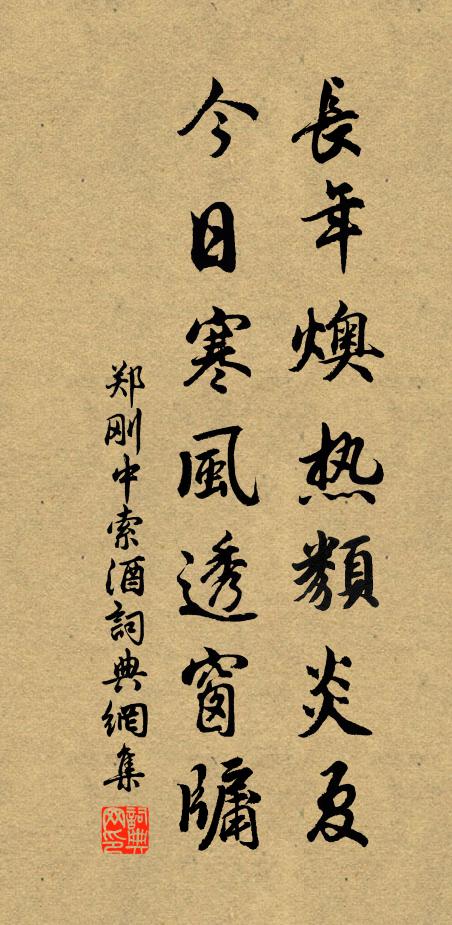 長年燠热類炎夏
今日寒風透窗牗
郑刚中索酒詞典網集
詞典
网印